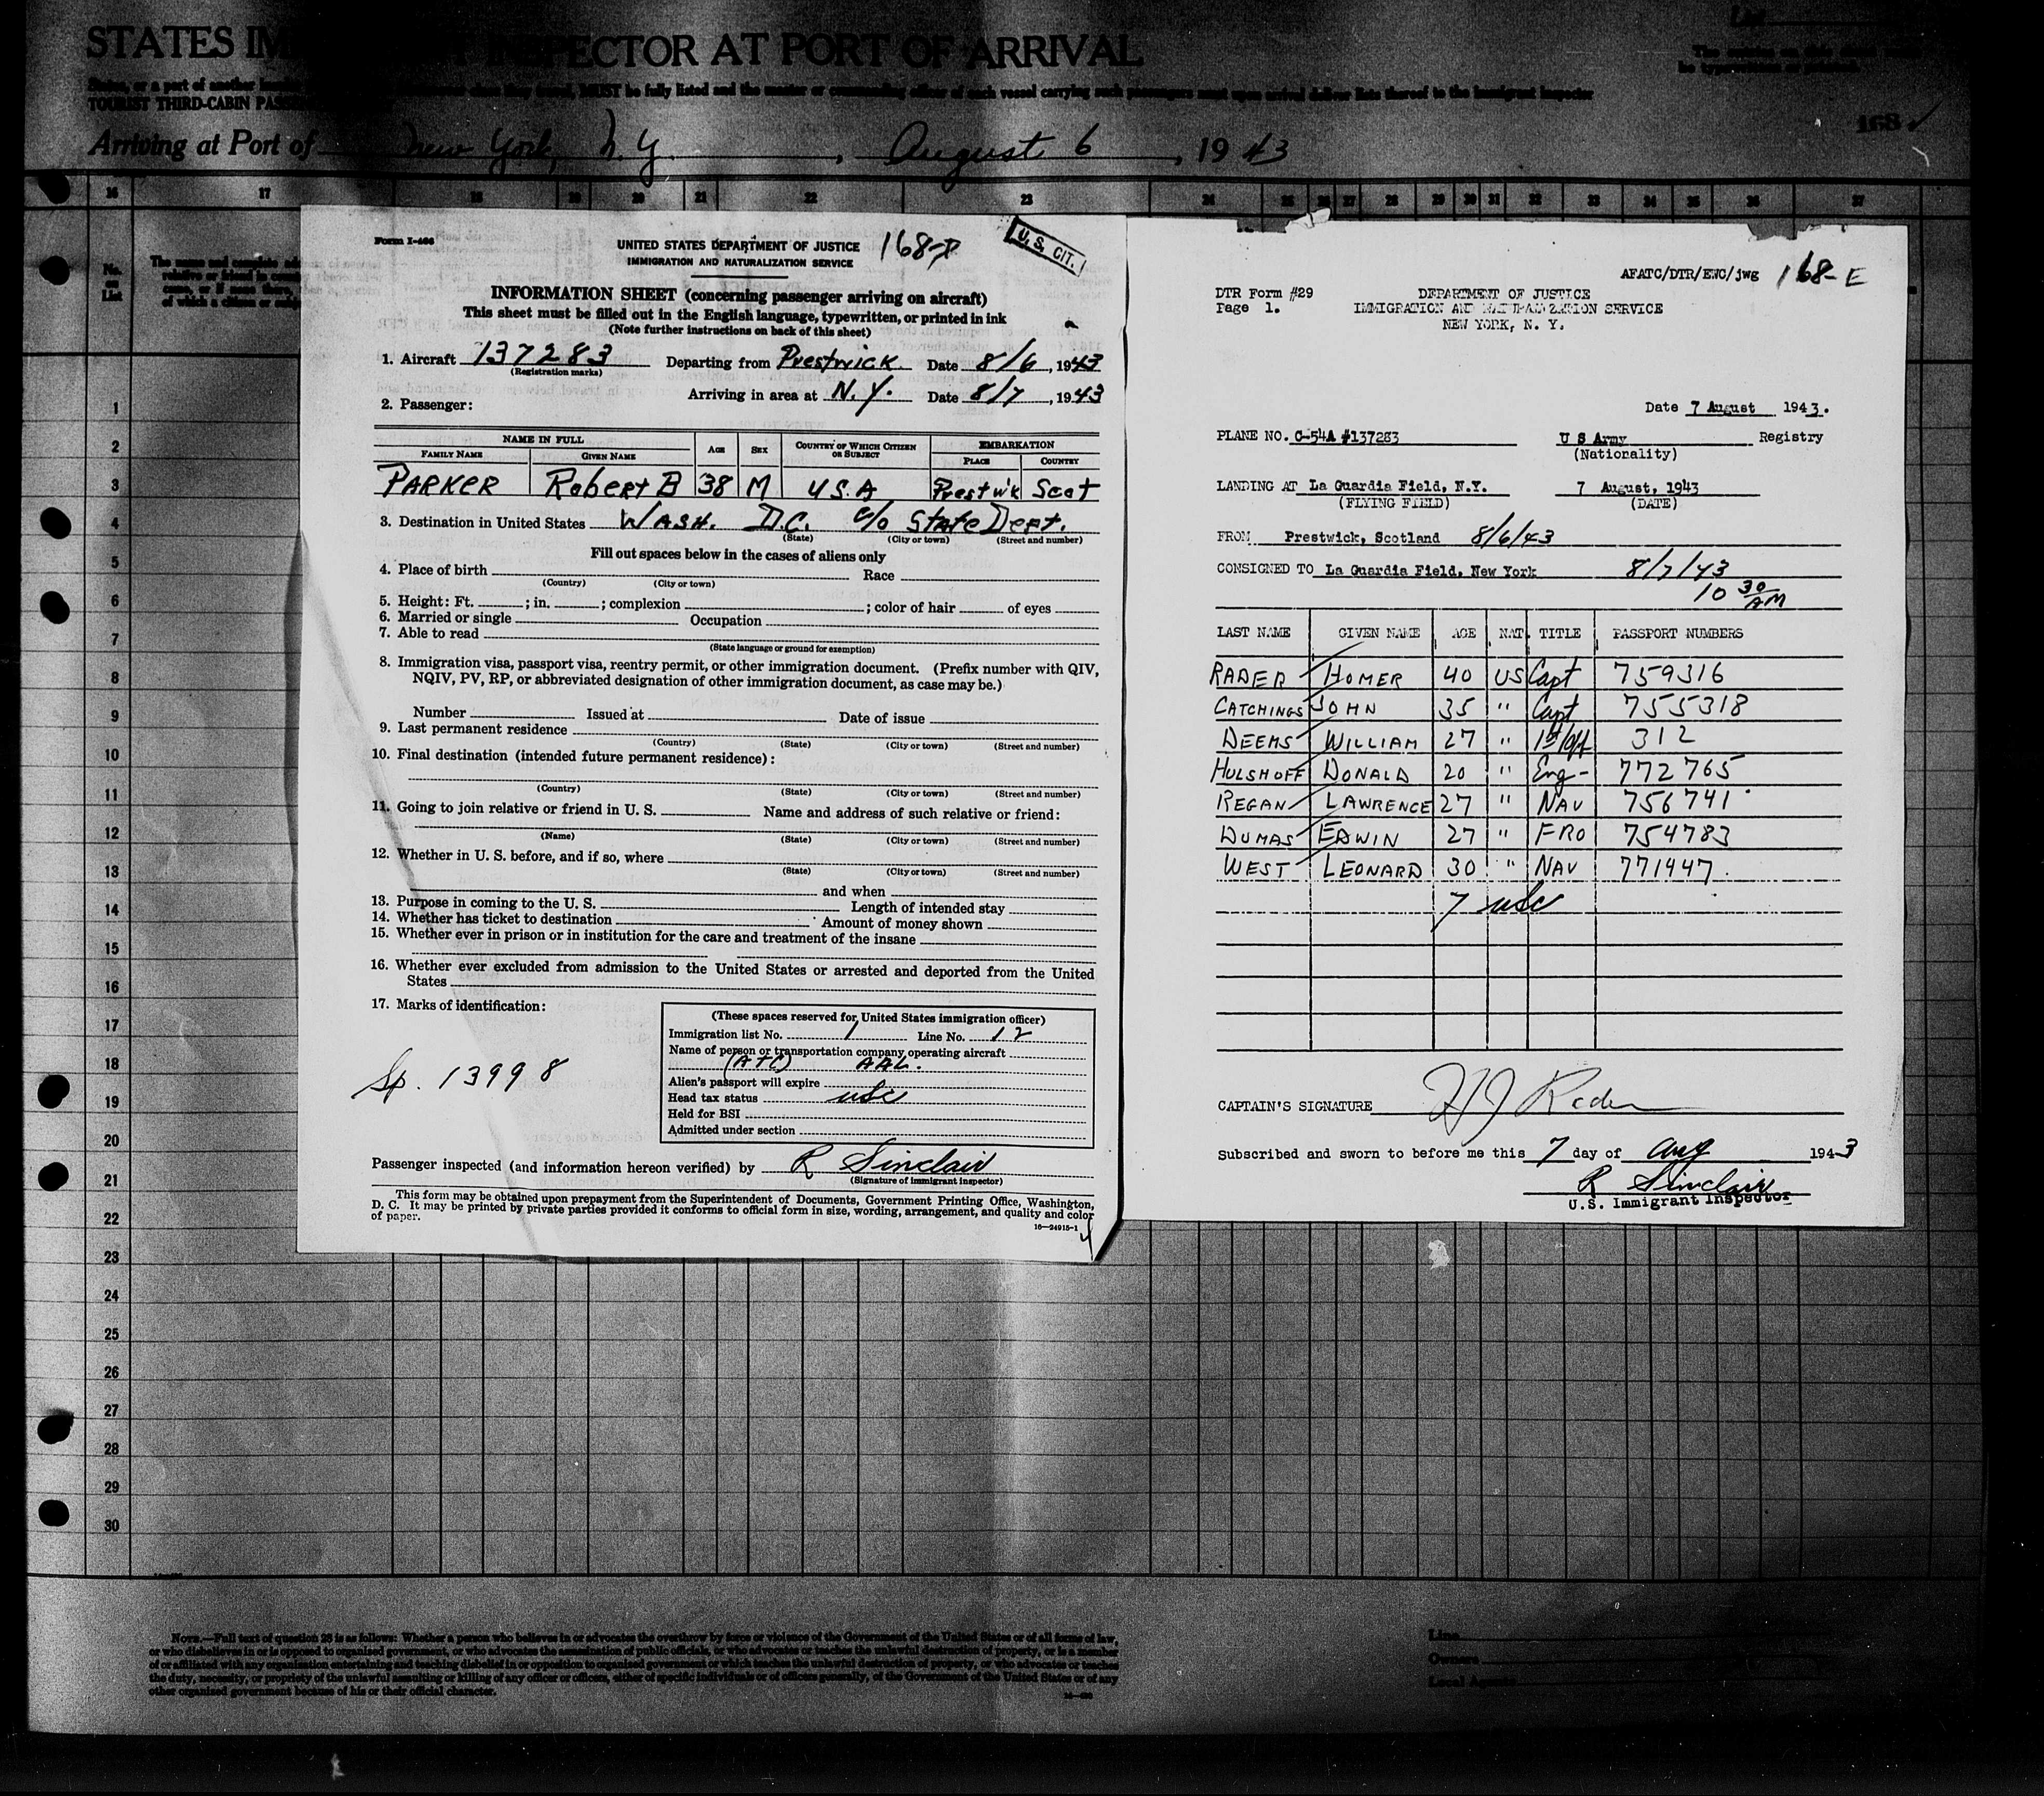 STATES IM
INSPECTOR AT PORT OF ARRIVAL
TOURIST THIRD-CABIN PASSE
MUST be fully listed and the master or commanding officer of each vessel carrying such passengers must upon arrival deliver lists thereof to the immigrant inspector
Arriving at Port of New York, N.Y., August 6, 1943
168
16 17 18 19 20 21 22 23 24 25 26 27 28 29 30 31 32 33 34 35 36 37
No. on List
1
2
3
4
5
6
7
8
9
10
11
12
13
14
15
16
17
18
19
20
21
22
23
24
25
26
27
28
29
30
Form I-466
UNITED STATES DEPARTMENT OF JUSTICE
IMMIGRATION AND NATURALIZATION SERVICE
168-D
U. S. CIT.
INFORMATION SHEET (concerning passenger arriving on aircraft)
This sheet must be filled out in the English language, typewritten, or printed in ink
(Note further instructions on back of this sheet)
1. Aircraft 137283 Departing from Prestwick Date 8/6, 1943
(Registration marks)
Arriving in area at N.Y. Date 8/7, 1943
2. Passenger:
NAME IN FULL
FAMILY NAME GIVEN NAME AGE SEX COUNTRY OF WHICH CITIZEN OR SUBJECT EMBARKATION
PLACE COUNTRY
PARKER Robert B 38 M U.S.A Prestw'k Scot
3. Destination in United States WASH. D.C. c/o State Dept.
(State) (City or town) (Street and number)
Fill out spaces below in the cases of aliens only
4. Place of birth Race
(Country) (City or town)
5. Height: Ft. ; in. ; complexion ; color of hair of eyes
6. Married or single Occupation
7. Able to read
(State language or ground for exemption)
8. Immigration visa, passport visa, reentry permit, or other immigration document. (Prefix number with QIV,
NQIV, PV, RP, or abbreviated designation of other immigration document, as case may be.)
Number Issued at Date of issue
9. Last permanent residence
(Country) (State) (City or town) (Street and number)
10. Final destination (intended future permanent residence):
(Country) (State) (City or town) (Street and number)
11. Going to join relative or friend in U. S. Name and address of such relative or friend:
(Name) (State) (City or town) (Street and number)
12. Whether in U. S. before, and if so, where
(State) (City or town) (Street and number)
and when
13. Purpose in coming to the U. S. Length of intended stay
14. Whether has ticket to destination Amount of money shown
15. Whether ever in prison or in institution for the care and treatment of the insane
16. Whether ever excluded from admission to the United States or arrested and deported from the United
States
17. Marks of identification:
Sp. 13998
(These spaces reserved for United States immigration officer)
Immigration list No. 1 Line No. 12
Name of person or transportation company operating aircraft
(ATC) AAL.
Alien's passport will expire
Head tax status usc
Held for BSI
Admitted under section
Passenger inspected (and information hereon verified) by R Sinclair
(Signature of immigrant inspector)
This form may be obtained upon prepayment from the Superintendent of Documents, Government Printing Office, Washington,
D. C. It may be printed by private parties provided it conforms to official form in size, wording, arrangement, and quality and color
of paper.
16—24915-1
AFATC/DTR/EWC/jwg 168-E
DTR Form #29
Page 1.
DEPARTMENT OF JUSTICE
IMMIGRATION AND NATURALIZATION SERVICE
NEW YORK, N. Y.
Date 7 August 1943.
PLANE NO. C-54A #137283 U S Army Registry
(Nationality)
LANDING AT La Guardia Field, N.Y. 7 August, 1943
(FLYING FIELD) (DATE)
FROM Prestwick, Scotland 8/6/43
CONSIGNED TO La Guardia Field, New York 8/7/43
10 30 AM
LAST NAME GIVEN NAME AGE NAT. TITLE PASSPORT NUMBERS
RADER HOMER 40 US Capt 759316
CATCHINGS JOHN 35 " Capt 755318
DEEMS WILLIAM 27 " 1st Off 312
HULSHOFF DONALD 20 " Eng- 772765
REGAN LAWRENCE 27 " NAV 756741
DUMAS EDWIN 27 " FRO 754783
WEST LEONARD 30 " NAV 771447.
7 usc
CAPTAIN'S SIGNATURE HJ Rader
Subscribed and sworn to before me this 7 day of Aug 1943
R Sinclair
U.S. Immigrant Inspector
NOTE.—Full text of question 28 is as follows: Whether a person who believes in or advocates the overthrow by force or violence of the Government of the United States or of all forms of law,
or who disbelieves in or is opposed to organized government, or who advocates the assassination of public officials, or who advocates or teaches the unlawful destruction of property, or is a member
of or affiliated with any organization entertaining and teaching disbelief in or opposition to organized government or which teaches the unlawful destruction of property, or who advocates or teaches
the duty, necessity, or propriety of the unlawful assaulting or killing of any officer or officers, either of specific individuals or of officers generally, of the Government of the United States or of any
other organized government because of his or their official character.
Line
Owners
Local Agents